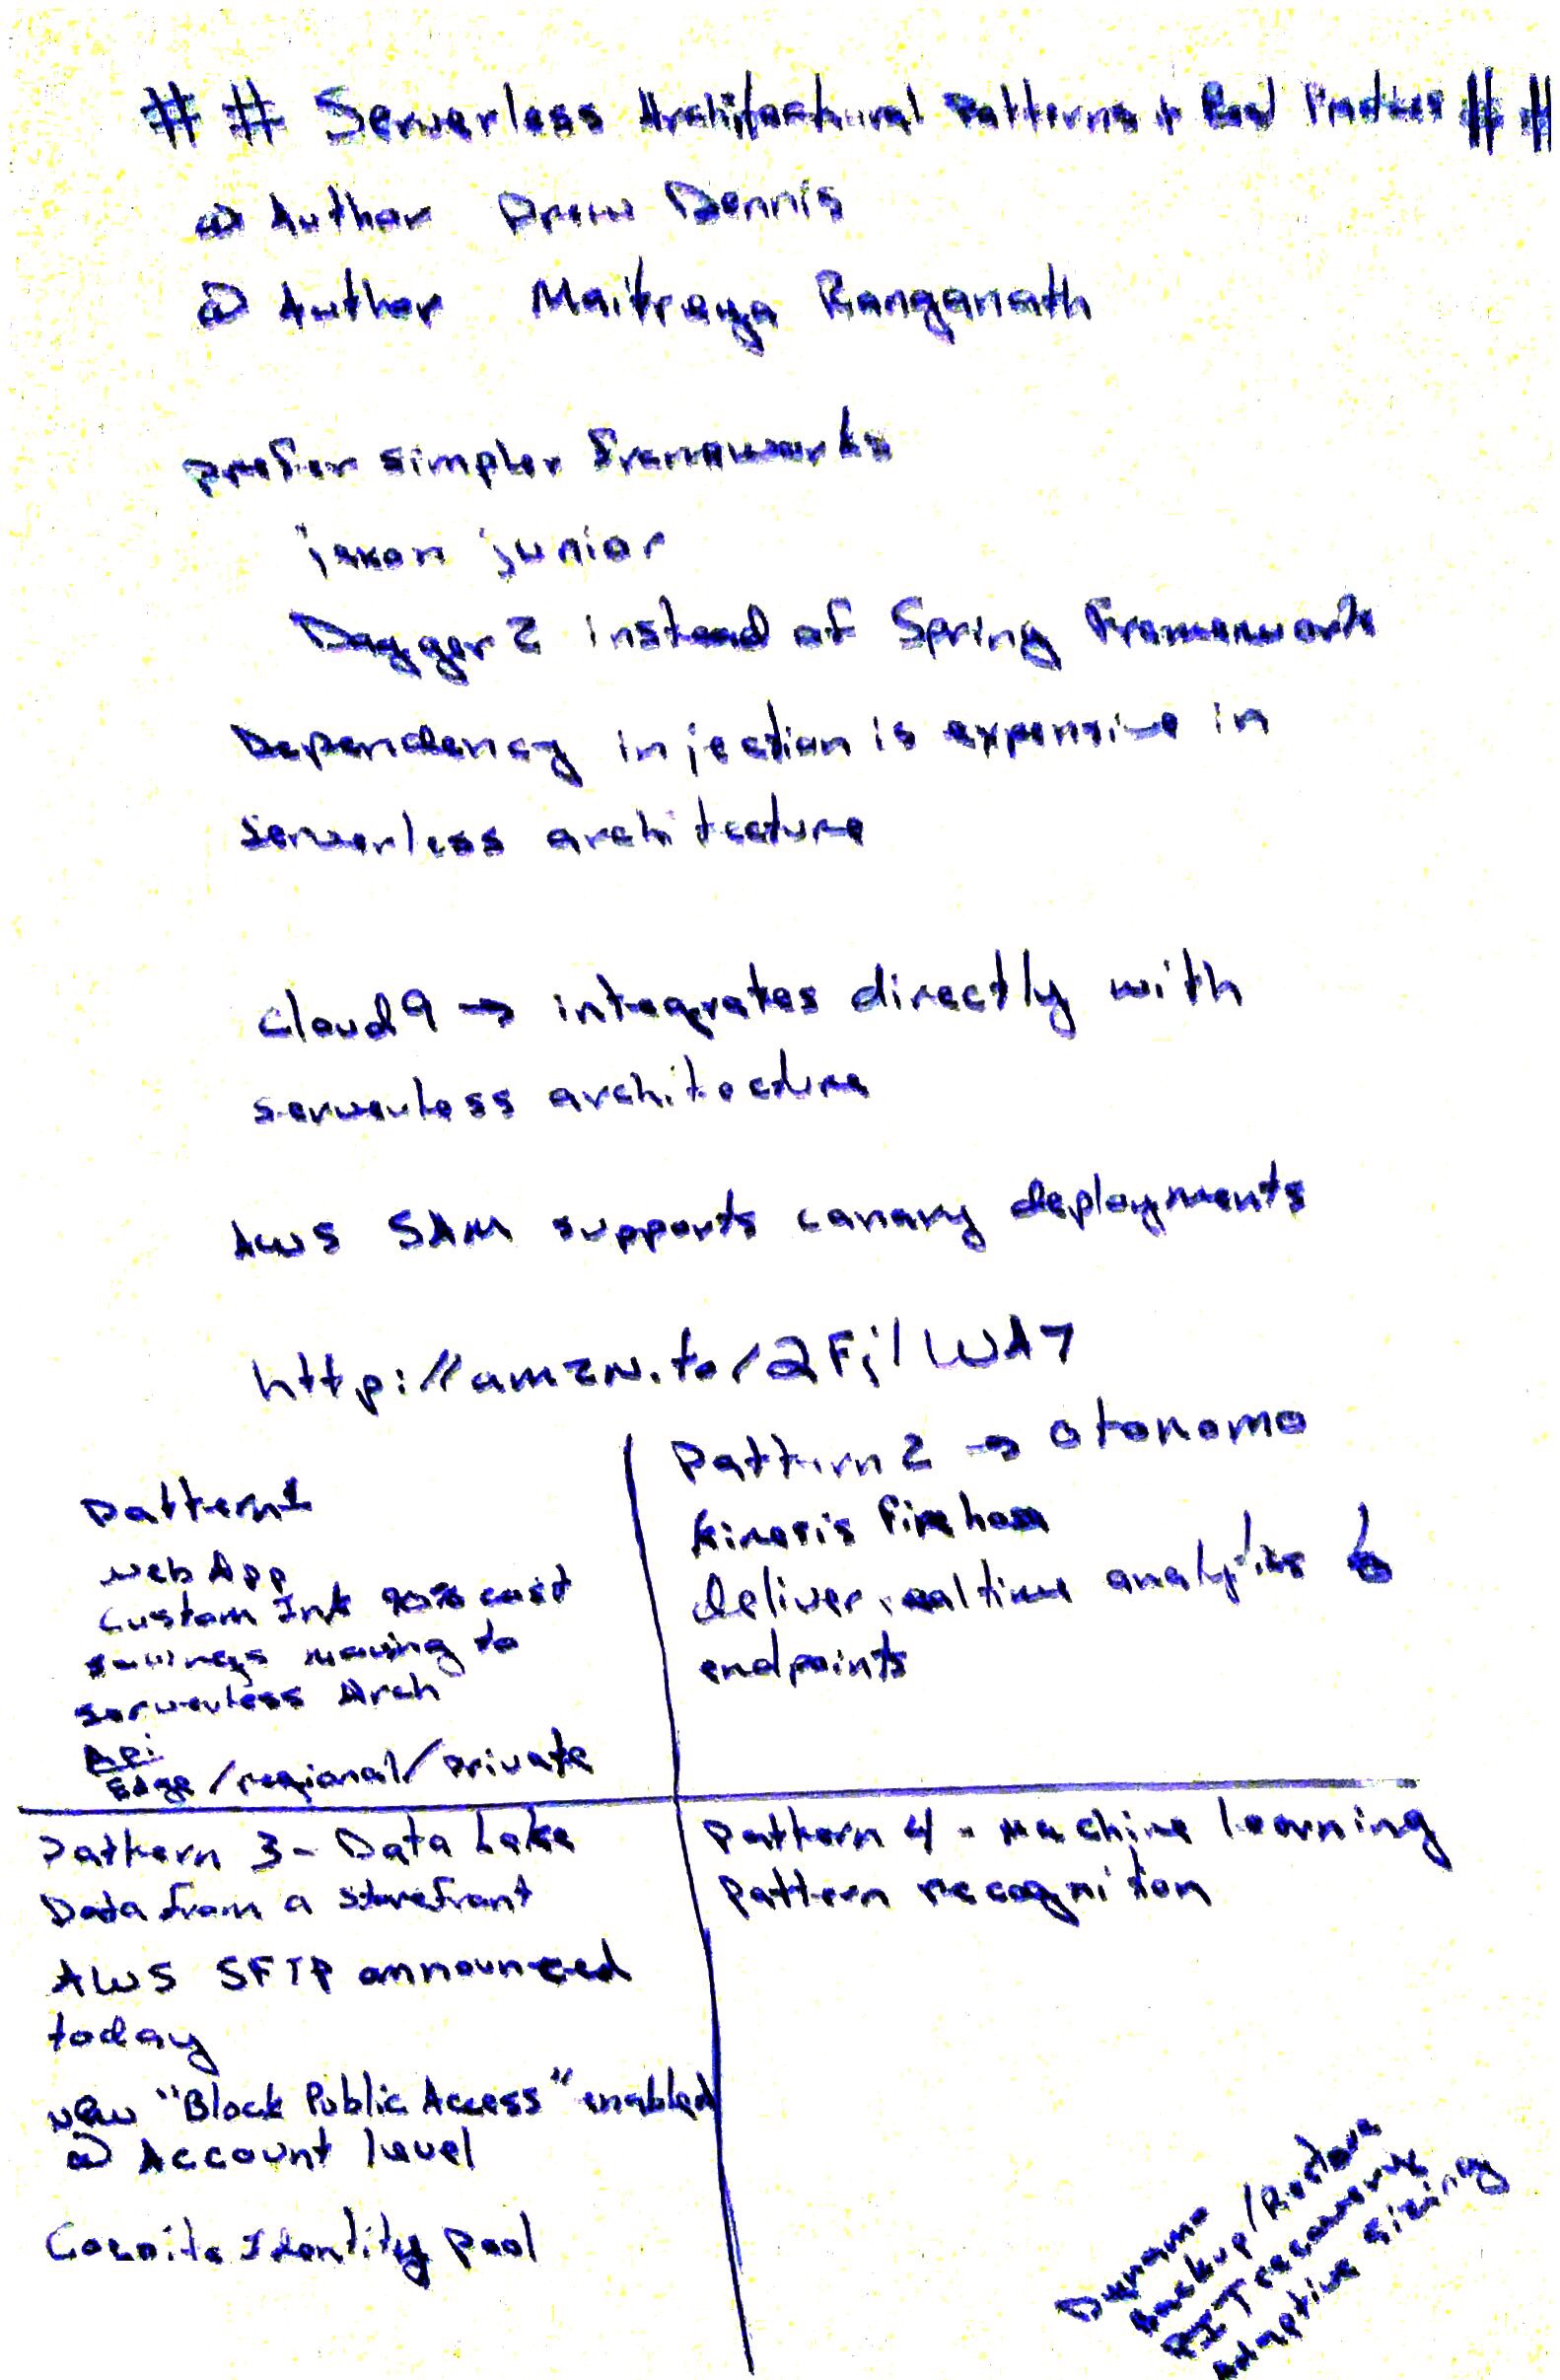 # # Serverless Architectural Patterns + Best Practices # #
@ Author Drew Dennis
@ Author Maitreya Ranganath
prefer simpler frameworks
jackson junior
Dagger 2 instead of Spring Framework
Dependency injection is expensive in
Serverless architecture
Cloud 9 → integrates directly with
serverless architecture
AWS SAM supports canary deployments
http://amzn.to/2FjlWA7
Pattern 1
Web App
Custom Ink 90% cost
savings moving to
serverless Arch
Api
Edge/regional/private
Pattern 2 → otonomo
kinesis firehose
deliver realtime analytics to
endpoints
Pattern 3 - Data Lake
Data from a storefront
AWS SFTP announced
today
new "Block Public Access" enabled
@ Account level
Cognito Identity Pool
Pattern 4 - Machine learning
pattern recognition
Dynamo
Backup/Restore
PIT recovery
adaptive sizing